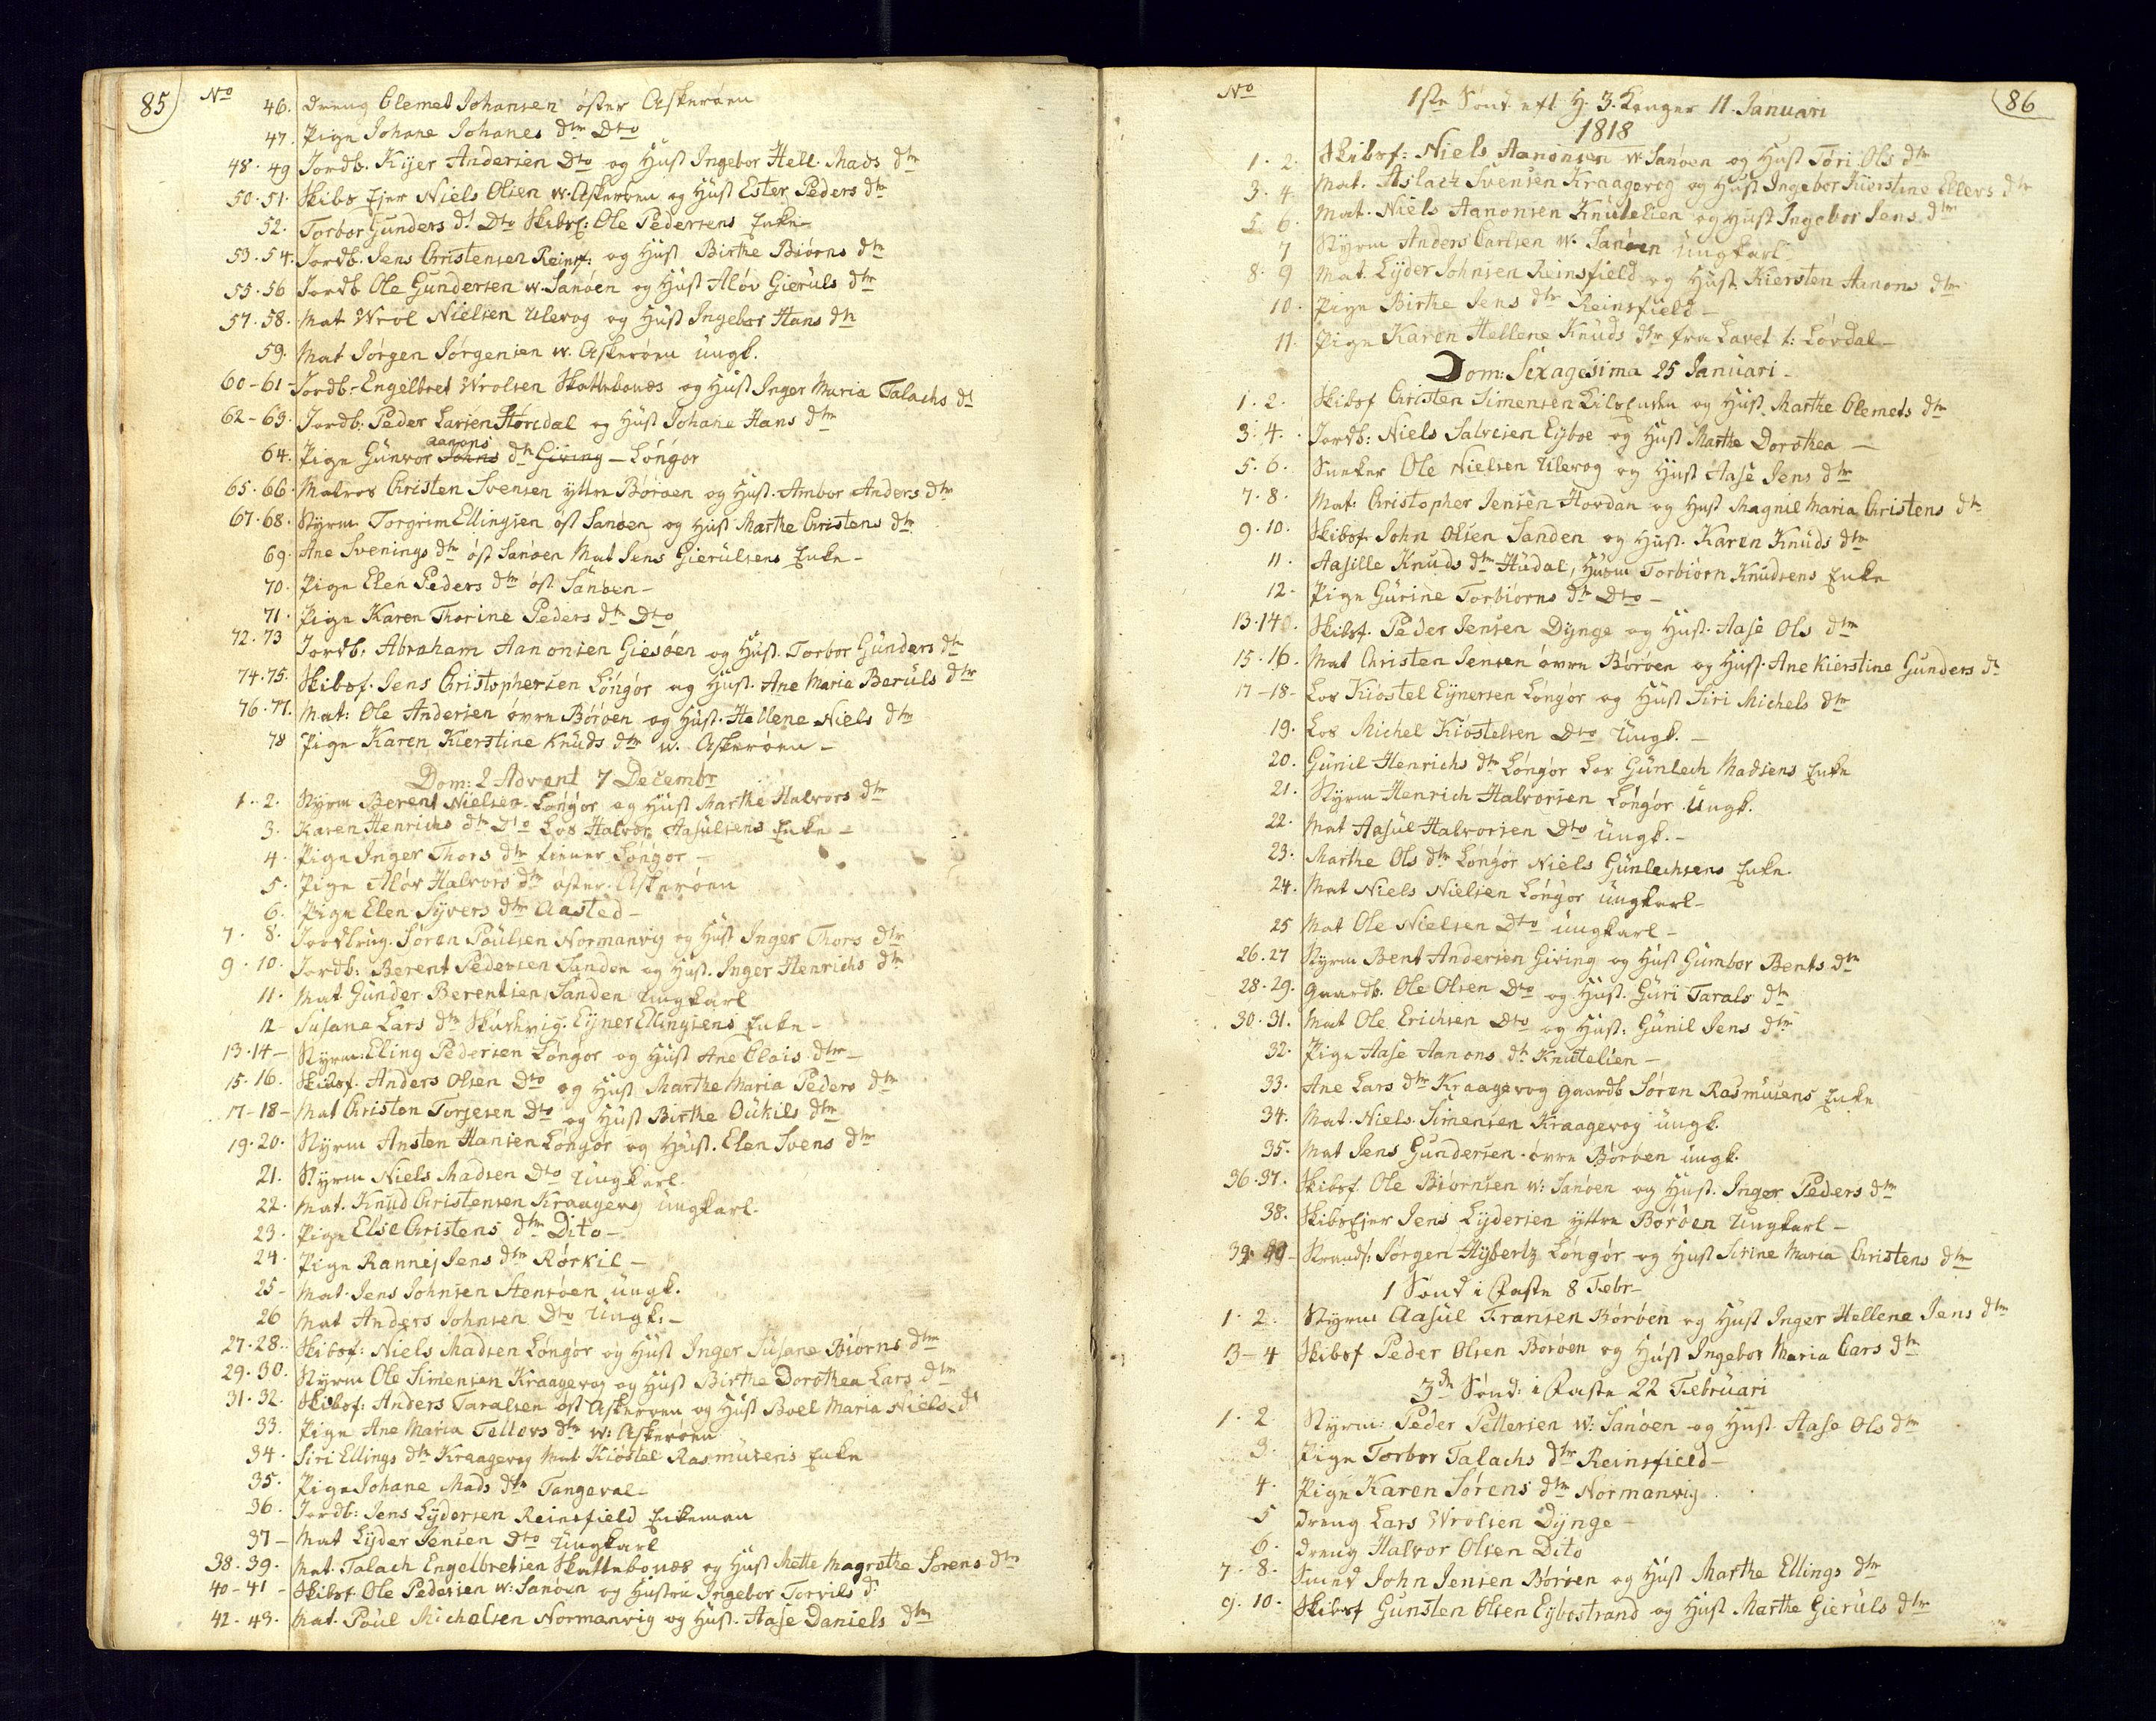 85
No
46. Dreng Clemet Johansen öster Askerøen
47. Pige Johane Johanes dtr Dto
48. 49 Jordb. Kijer Andersen Dto og Hust Ingebor Hell. Mads dtr
50. 51. Skibs Ejer Niels Olsen w. Askerøen og Hust Ester Peders dtr
52. Torbor Gunders dt Dto Skibsf: Ole Pedersens Enke
53. 54. Jordb. Jens Christensen Reinsf: og Hust Birthe Biörns dtr
55. 56 Jordb Ole Gundersen w. Sanöen og Hust Alöv Gieruls dtr
57. 58. Mat Wrol Nielsen Ulevog og Hust Ingebor Hans dtr
59. Mat Jörgen Jörgensen w. Askeröen ungk.
60-61- Jordb. Engelbret Wrolsen Skattebonæs og Hust Inger Maria Talachs dt
62-63. Jordb. Peder Larsen Horsdal og Hust Johane Hans dtr
64. Pige Gunvor Johns aanons dtr Giving - Löngör
65. 66. Matros Christen Svensen ytter Böröen og Hust. Ambor Anders dtr
67. 68. Styrm Torgrim Ellingsen öst Sanöen og Hust Marthe Christens dtr
69. Ane Svenings dtr öst Sanöen Mat Jens Gierulsens Enke -
70. Pige Elen Peders dtr öst Sanöen -
71. Pige Karen Thorine Peders dtr Dto
72. 73 Jordb: Abraham Aanonsen Giesöen og Hust. Torbor Gunders dtr
74. 75. Skibsf. Jens Christophersen Löngör og Hust. Ane Maria Beruls dtr
76. 77. Mat: Ole Andersen övre Böröen og Hust. Hellene Niels dtr
78 Pige Karen Kierstine Knuds dtr w. Askeröen -
Dom: 2 Advent 7 Decembr
1. 2. Styrm Berent Nielsen Löngör og Hust Marthe Halvors dtr
3. Karen Henrichs dtr Dto Los Halvor Aasulsens Enke -
4. Pige Inger Thors dtr Löngör -
5. Pige Alöv Halvors dtr öster Askeröen
6. Pige Elen Syvers dtr Aasted -
7. 8. Jordbrug. Sören Poulsen Normanvig og Hust Inger Thors dtr
9. 10. Jordb: Berent Pedersen Sanden og Hust. Inger Henrichs dtr
11. Mat Gunder Berentsen Sanden Ungkarl
12- Susane Lars dtr Skuthvig. Eyner Ellingsens Enke -
13. 14- Styrm: Eling Pedersen Löngör og Hust Ane Clais dtr -
15. 16. Skibsf. Anders Olsen Dto og Hust Marthe Maria Peders dtr
17-18- Mat Christen Torjesen Dto og Hust Birthe Oukils dtr
19. 20. Styrm Ansten Hansen Löngör og Hust. Elen Svens dtr
21. Styrm Niels Madsen Dto Ungkarl
22. Mat. Knud Christensen Kraagevog ungkarl.
23. Pige Else Christens dtr Dito -
24. Pige Rannej Jens dtr Rörkil -
25- Mat. Jens Johnsen Stensöen ungk.
26 Mat Anders Johnsen Dto Ungk: -
27. 28. Skibsf: Niels Madsen Löngör og Hust Inger Susane Biörns dtr
29. 30. Styrm Ole Simensen Kraagevog og Hust Birthe Dorothea Lars dtr
31. 32. Skibsf: Anders Taralsen öst Askeröen og Hust Boel Maria Niels dt
33. Pige Ane Maria Tellevs dtr w: Askeröen
34. Siri Ellings dtr Kraagevog Mat Kiöstel Rasmusens Enke
35. Pige Johane Mads dtr Tangeval -
36. Jordb: Jens Lydersen Reinsfield Enkeman
37- Mat Lyder Jensen Dto Ungkarl
38. 39. Mat. Talach Engelbretsen Skattebonæs og Hust Mette Magrethe Sörens dtr
40-41 - Skibsf Ole Pedersen w: Sanöen og Hustru Ingebor Torkils dt
42-43. Mat. Poul Michelsen Normanvig og Hust. Aase Daniels dtr
86
No
1ste Sönd eft H. 3. Konger 11. Januari
1818
1. 2. Skibsf: Niels Aanonsen w. Sanöen og Hust Töri Ols dtr
3. 4 Mat. Aslach Svensen Kraagevog og Hust Ingebor Kierstine Ellevs dtr
5 6. Mat. Niels Aanonsen Knutelien og Hust Ingebor Jens dtr
7 Styrm Anders Carlsen w. Sanöen Ungkarl
8. 9 Mat. Lyder Johnsen Reinsfield og Hust. Kiersten Aanons dtr
10. Pige Birthe Jens dtr Reinsfield -
11. Pige Karen Hellene Knuds dtr fra Lavet t: Lövdal -
Dom: Sexagesima 25 Januari -
1. 2. Skibsf Christen Simensen og Hust Marthe Clemets dtr
3. 4. Jordb: Niels Salvesen Eyboe og Hust Marthe Dorothea -
5. 6. Sneker Ole Nielsen Ulevog og Hust Aase Jens dtr
7. 8. Mat: Christopher Jensen Hovdan og Hust Magnil Maria Christens dtr
9. 10. Skibsf John Olsen Sanden og Hust. Karen Knuds dtr
11. Aasille Knuds dtr Hudal, Husm Torbiörn Knudsens Enke
12. Pige Gurine Torbiörns dtr Dto -
13. 14. Skibsf. Peder Jensen Dynge og Hust. Aase Ols dtr
15. 16. Mat Christen Jensen övre Böröen og Hust. Ane Kierstine Gunders dt
17-18- Los Kiöstel Eynersen Löngör og Hust Siri Michels dtr
19. Los Michel Kiöstelsen Dto Ungk. -
20. Gunil Henrichs dtr Löngör Los Gunlech Madsens Enke
21. Styrm Henrich Halvorsen Löngör Ungk.
22. Mat Aasul Halvorsen Dto ungk. -
23. Marthe Ols dtr Löngör Niels Gunlechsens Enke.
24. Mat Niels Nielsen Löngör ungkarl -
25 Mat Ole Nielsen Dto ungkarl -
26. 27 Styrm Bent Andersen Giving og Hust Gumbor Bents dtr
28. 29. Gaardb. Ole Olsen Dto og Hust. Guri Tarals dtr
30. 31. Mat Ole Erichsen Dto og Hust: Gunil Jens dtr
32. Pige Aase Aanons dt Knutelien -
33. Ane Lars dtr Kraagevog Gaardb Sören Rasmusens Enke
34. Mat. Niels Simensen Kraagevog ungk.
35. Mat Jens Gundersen. övre Böröen ungk.
36. 37. Skibsf. Ole Biörnsen w: Sanöen og Hust. Inger Peders dtr
38. Skibs Ejer Jens Lydersen yttre Böröen Ungkarl -
39. 40- Strands: Jörgen Hybertz Löngör og Hust Sirine Maria Christens dtr
1 Sönd i Faste 8 Febr -
1. 2. Styrm Aasul Fransen Böröen og Hust Inger Hellene Jens dtr
3-4 Skibsf Peder Olsen Böröen og Hust Ingebor Maria Lars dtr
3de Sönd: i Faste 22 Februari
1. 2. Styrm: Peder Pettersen w: Sanöen og Hust. Aase Ols dtr
3. Pige Torbor Talachs dtr Reinsfield -
4. Pige Karen Sörens dtr Normanvig
5 Dreng Lars Wrolsen Dynge -
6. Dreng Halvor Olsen Dito
7. 8. Smed John Jensen Böröen og Hust Marthe Ellings dtr
9. 10. Skibsf Gunsten Olsen Eybostrand og Hust Marthe Gieruls dtr